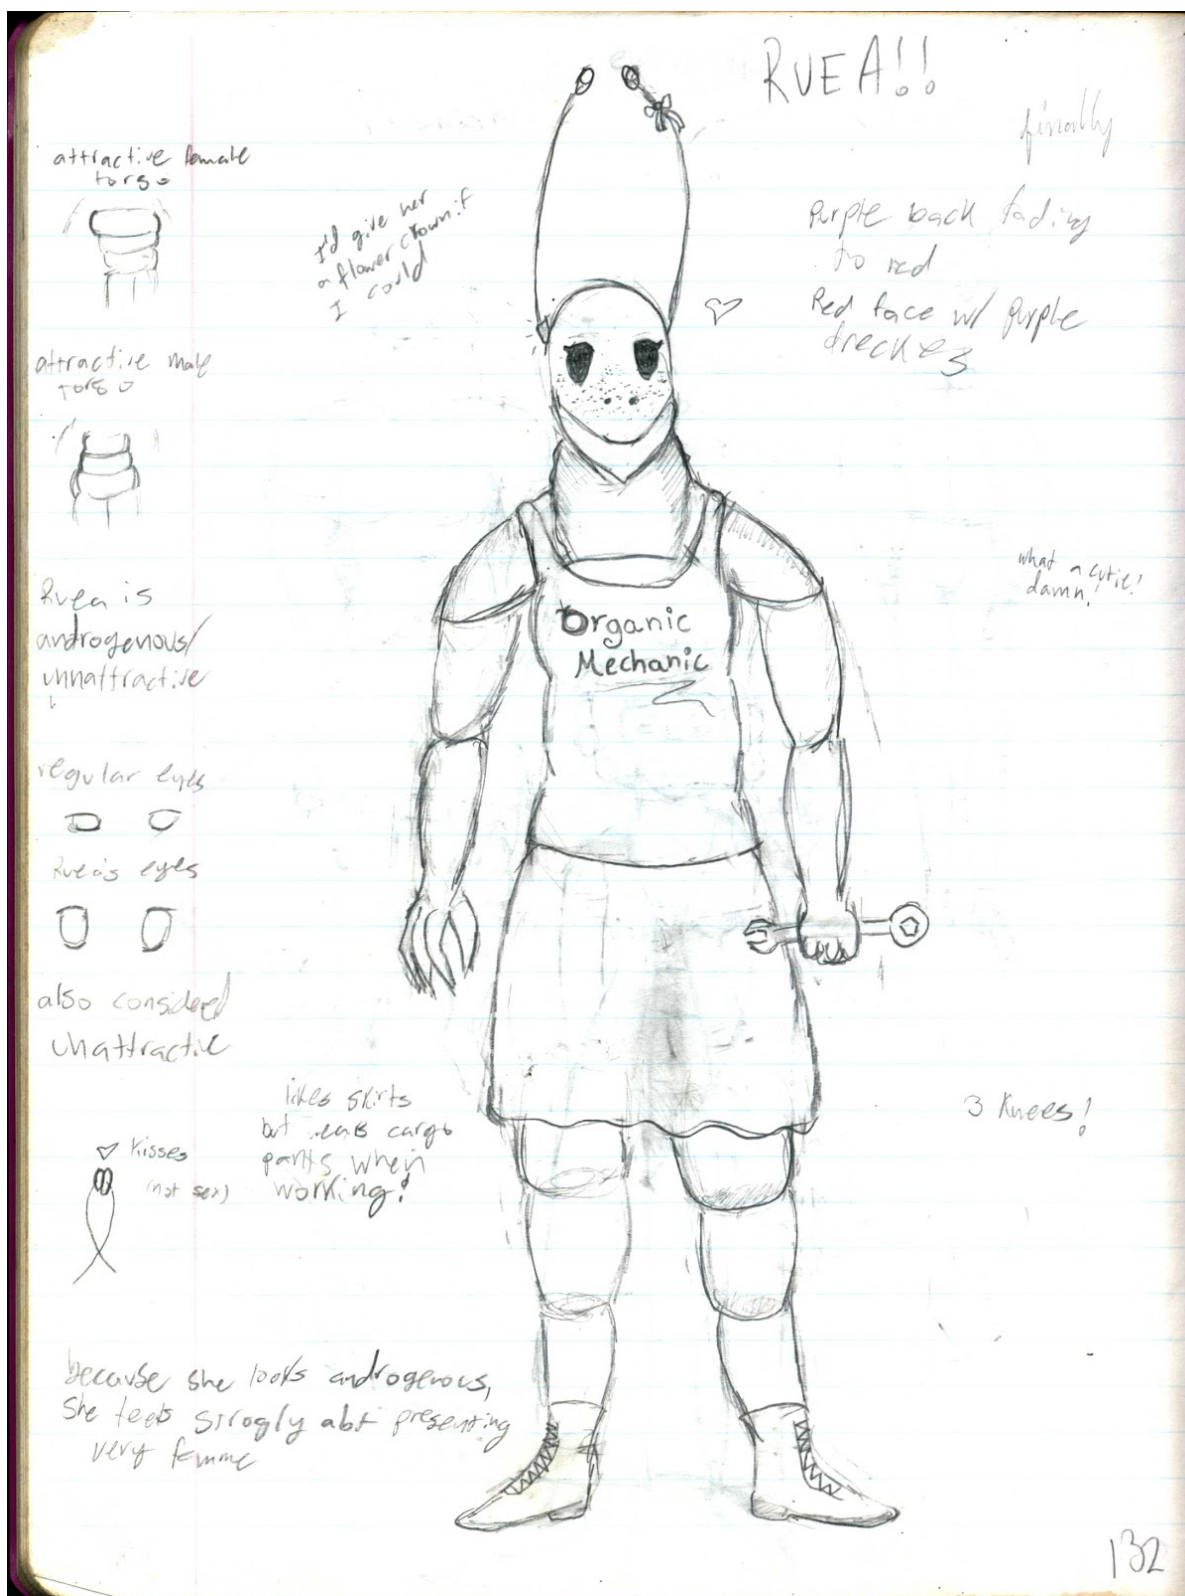 RVEA!!
finally
attractive female
torso
I'd give her
a flower crown if
I could
Purple back fading
to red
Red face w/ purple
freckles
attractive male
torso
what a cutie!
damn!
Organic
Mechanic
Rvea is
androgenous/
unnattractive
regular eyes
Rvea's eyes
also considered
unattractive
likes skirts
but wears cargo
pants when
working!
3 Knees!
♡ Kisses
(not sex)
because she looks androgenous,
she feels strogly abt presenting
very femme
132